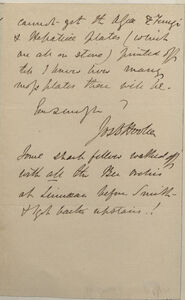 cannot get the Algae & Fungi
& Hepaticae plates (which
are all on stone) printed off
till I know how many
moss plates there will be.
Jos D Hooker
Some shark fellows walked off
with all the Bee orchis
at Linnean before Smith
& I got back upstairs!!